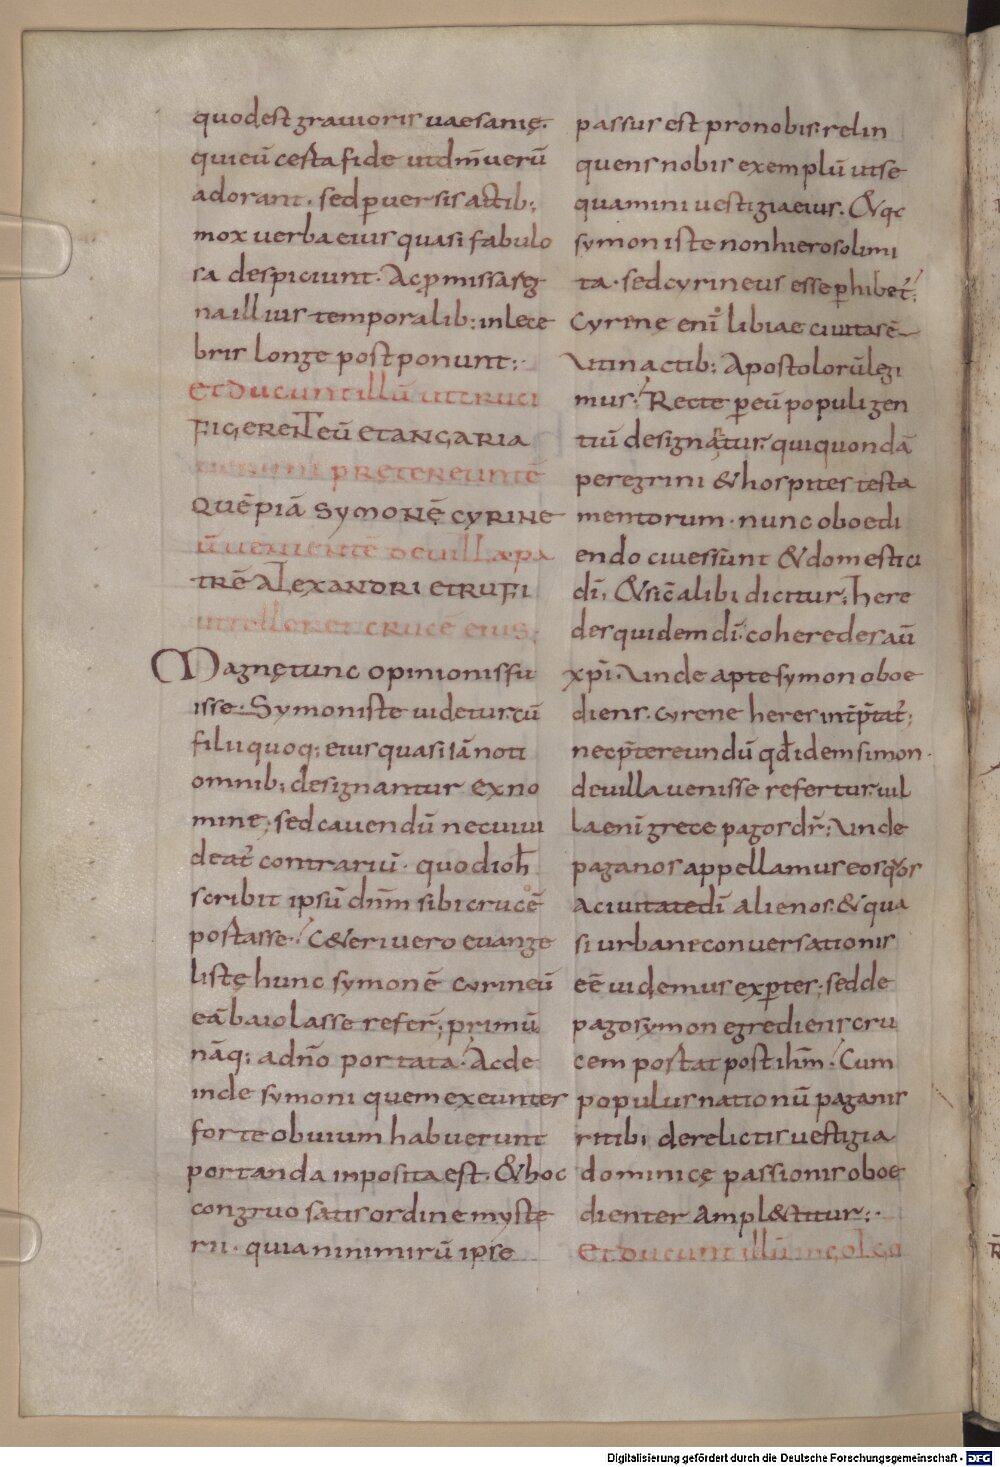 quodest grauioris uaesanię.
quieū cesta fide utdm̄ uerū
adorant. sed ꝑuersis actib;
mox uerba eius quasi fabulo
sa despiciunt. Acp̱missa reg
na illius temporalib; inlece
bris longe postponunt;
Et ducunt illū ut cruci
FIGERENT eū et angaria
uerunt pręterę untē
quēpiā symonē cyrine
ū uenientē deuilla pa
trē alexandri et rufi
ut tolleret crucē eius;
Magnę tunc opinionis fu
isse. Symon iste uidetur. cū
filii quoq; eius quasi iā noti
omnib; designantur ex no
mine; sed cauendū necuiui
deat̄ contrariū. quod ioh̄
scribit ipsū dn̄m sibi crucē
portasse. Ceteri uero euange
listę hunc symonē cyrineū
eā baiolasse refer̄; primū
nāq; adn̄o portata. Acde
inde symoni quem exeuntes
forte obuium habuerunt
portanda inposita est. & hoc
congruo satis ordine myste
rii. quia nimirū ipse
passus est pro nobis. relin
quens nobis exemplū utse
quamini uestigia eius. & qc
symon iste non hierosolimi
ta. sed cyrineus esse ꝑhibet̄;
Cyrene enī libiae ciuitas ē
Utin actib; Apostolorū legi
mus; Recte ꝑeū populi gen
tiū designatur. qui quondā
peregrini & hospites testa
mentorum. nunc oboedi
endo ciues sunt & domestici
dī, & sic̄ alibi dicitur; here
des quidem dī. coheredes aū
xp̄i. Unde apte symon oboe
diens. cyrene heres int̄p̄tat̄;
nec p̄tereundū qd̄ idem simon
de uilla uenisse refertur. uil
la enī grece pagos dr̄; Unde
paganos appellamus eos quos
a ciuitate dī alienos. & qua
si urbane conuersationis
eē uidemus exꝑtes; sed de
pago symon egrediens cru
cem portat post ihm̄. Cum
populus nationū paganis
ritib; derelictis uestigia
dominicę passionis oboe
dienter amplectitur;
Et ducunt illū in golgo
Digitalisierung gefördert durch die Deutsche Forschungsgemeinschaft - DFG